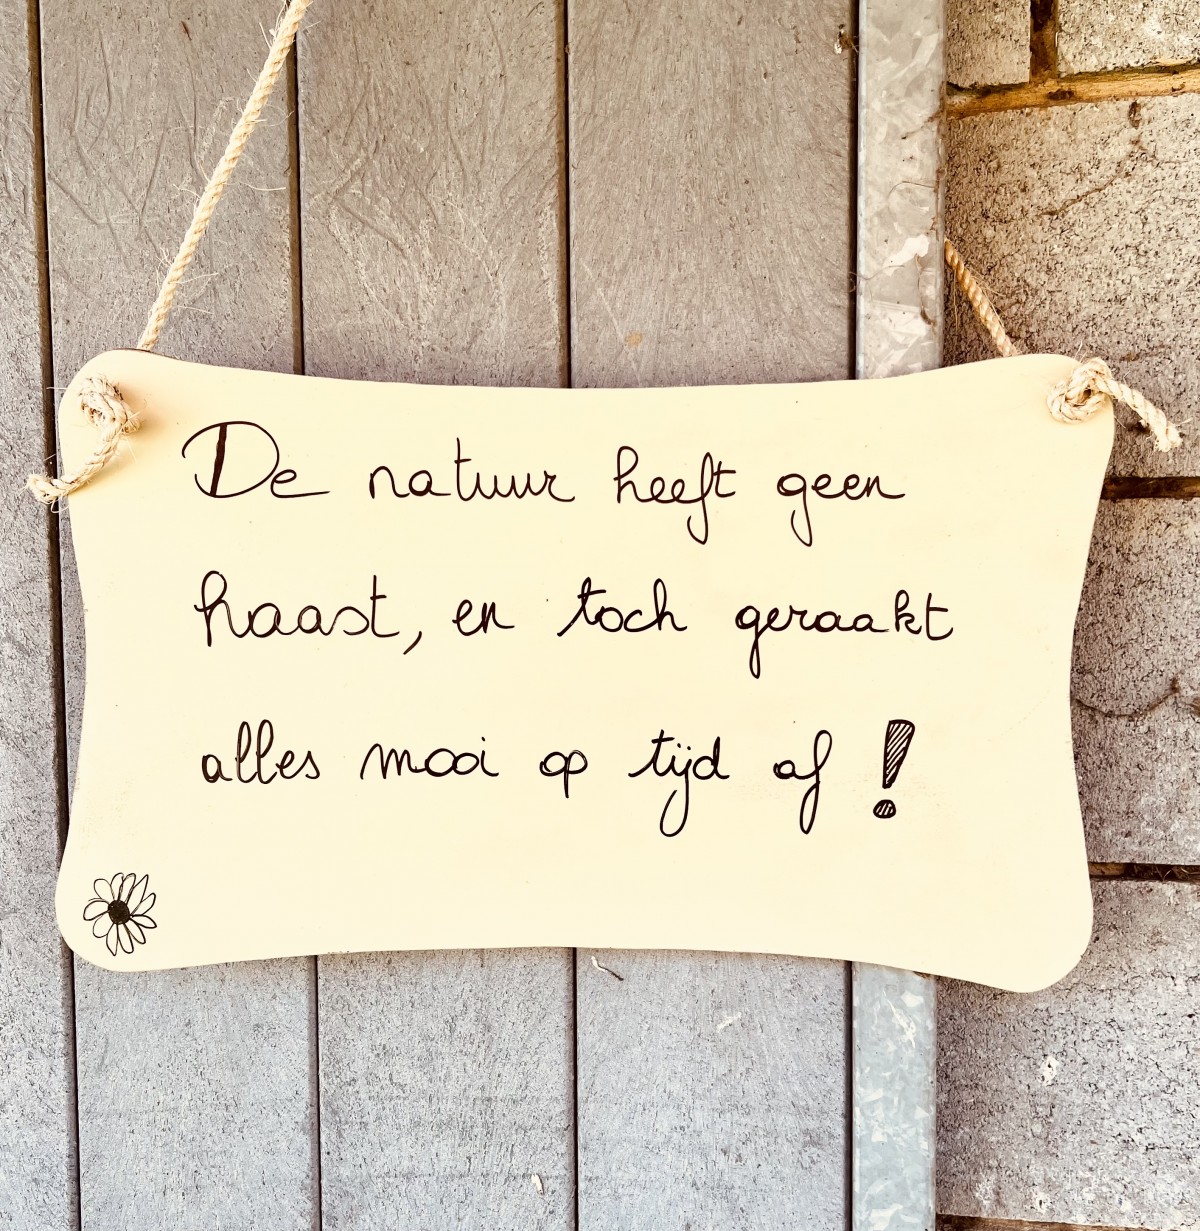 De natuur heeft geen
haast, en toch geraakt
alles mooi op tijd af!